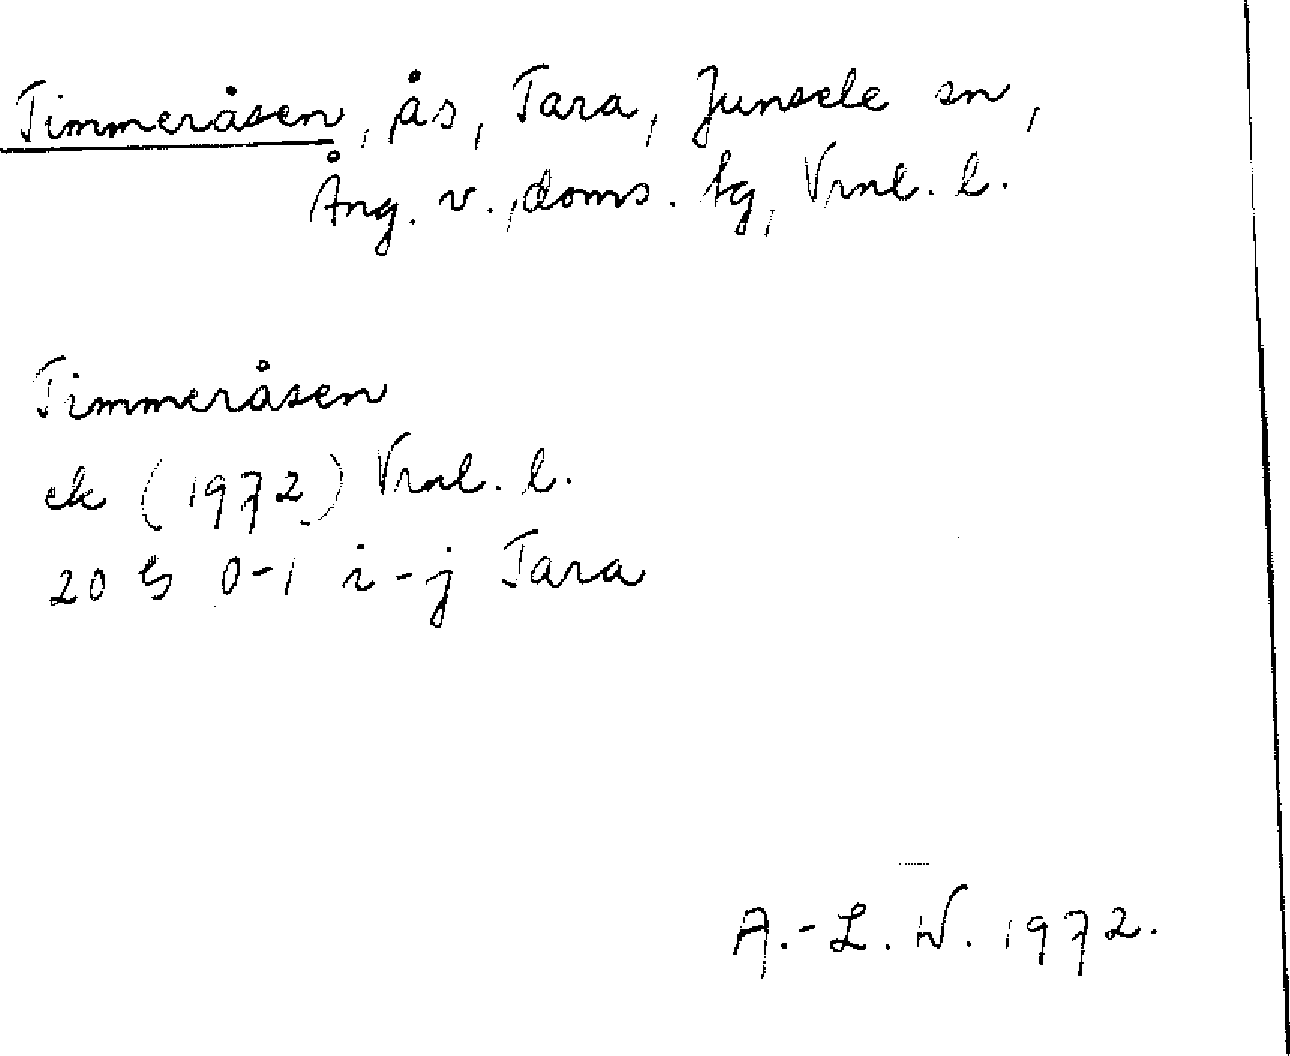 Timmeråsen, ås, Tara, Junsele sn,
Ång. v., doms. tg, Vrnl. l.
Timmeråsen
ek (1972) Vrnl. l.
20 G 0-1 i-j Tara
A.-L. W. 1972.